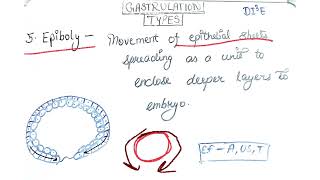 GASTRULATION
TYPES
DI³E
5. Epiboly - Movement of epithelial sheets
spreading as a unit to
enclose deeper layers to
embryo.
EF - A, US, T